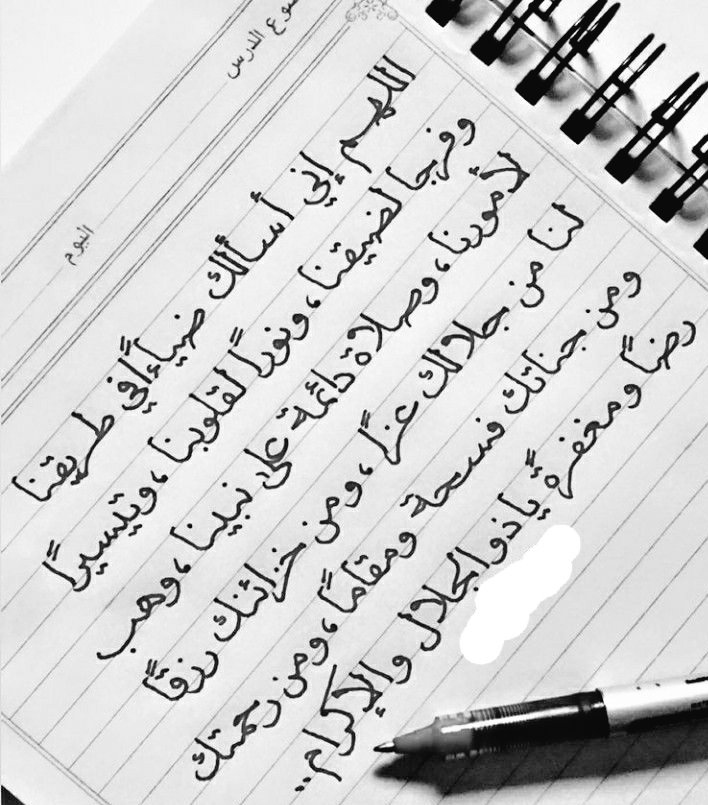 موضوع الدرس
اليوم
اللهم إني أسألك ضياءً في طريقنا
وفرجا لضيقنا ، ونورًا لقلوبنا ، وتيسيرًا
لأمورنا ، وصلاة دائمة على نبينا ، وهب
لنا من جلالك عزًا ، ومن خزائنك رزقًا
ومن جناتك فسحة ومقامًا ، ومن رحمتك
رضًا ومغفرةً يا ذو الجلال والإكرام ..